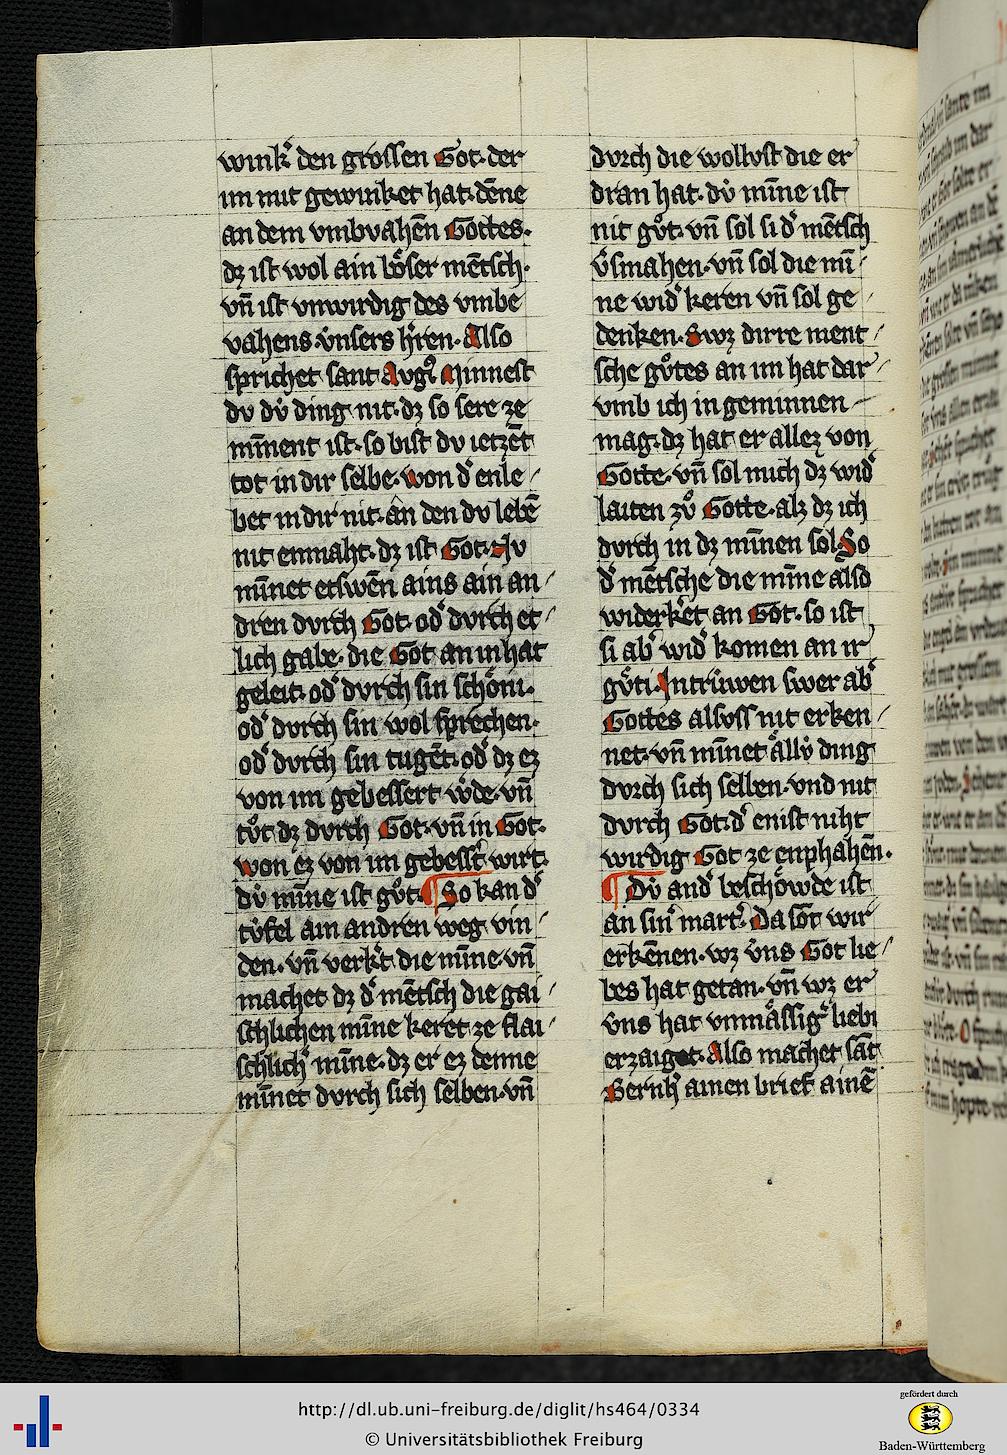 winkꝰ den grossen Got. der
im mit gewinket hat. dēne
an dem vmbvahēn Gottes.
dz ist wol ain bo᷑ser mētsch.
vn̄ ist vnwirdig des vmbe
vahens v́nsers h̓ren. Also
sprichet sant Avgꝰ. Minnest
dv dv́ ding nit. dz so sere ze
mīnent ist. so bist dv ietzēt
tot in dir selbe. won dꝰ enle
bet in dir nit. ân den dv lebē
nit enmaht. dz ist Got. Nv
mīnet etswēn ains ain an
dren dvrch Got. odꝰ dvrch et
lich gabe. die Got an in hat
geleit. odꝰ dvrch sin schöni.
odꝰ dvrch sin wol sprechen.
odꝰ dvrch sin tugēt. odꝰ dz ez
von im gebessert wꝰde. vn̄
tv̊t dz dvrch Got. vn̄ in Got.
won ez von im gebessꝰt wirt.
dv́ mīne ist gv̊t. ¶ So kan dꝰ
tv́fel ain andren weg vin
den. vn̄ verkꝰt die mīne. vn̄
machet dz dꝰ mētsch die gai
schlichen mīne keret ze flai
schlichꝰ mīne. dz er ez denne
mīnet dvrch sich selben. vn̄
dvrch die wollvst die er
dran hat. dv́ mīne ist
nit gv̊t. vn̄ sol si dꝰ mētsch
vꝰsmahen. vn̄ sol die mī
ne widꝰ keren vn̄ sol ge
denken. Swz dirre ment
sche gv̊tes an im hat dar
vmb ich in geminnen
mag. dz hat er allez von
Gotte. vn̄ sol mich dz widꝰ
laiten zv̊ Gotte. alz dz ich
dvrch in dz mīnen sol. So
dꝰ mētsche die mīne also
widerkꝰet an Got. so ist
si abꝰ widꝰ komen an ir
gv̊ti. Intrúwen swer abꝰ
Gottes alsvss nit erken
net. vn̄ mīnet ällv́ ding
dvrch sich selben. vnd nit
dvrch Got. dꝰ enist niht
wirdig Got ze enphahēn.
¶ Dv́ andꝰ beschöwde ist
an sinꝰ martꝰ. Da sōt wir
erkēnen. wz v́ns Got lie
bes hat getan. vn̄ wz er
v́ns hat vnmässigꝰ liebi
erzaiget. Also machet sāt
Bernhꝰ ainen brief ainē
http://dl.ub.uni-freiburg.de/diglit/hs464/0334
© Universitätsbibliothek Freiburg
gefördert durch
Baden-Württemberg